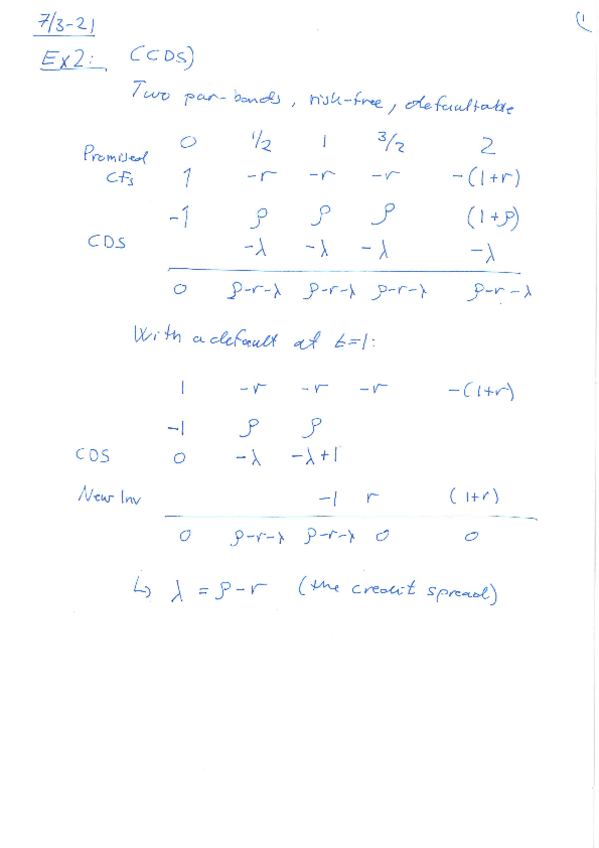 7/3-21 (1
Ex2: (CDS)
Two par-bonds, risk-free, defaultable
0 1/2 1 3/2 2
Promised
CFs 1 -r -r -r -(1+r)
-1 ρ ρ ρ (1+ρ)
CDS -λ -λ -λ -λ
0 ρ-r-λ ρ-r-λ ρ-r-λ ρ-r-λ
With a default at t=1:
1 -r -r -r -(1+r)
-1 ρ ρ
CDS 0 -λ -λ+1
New Inv -1 r (1+r)
0 ρ-r-λ ρ-r-λ 0 0
↳ λ = ρ-r (the credit spread)